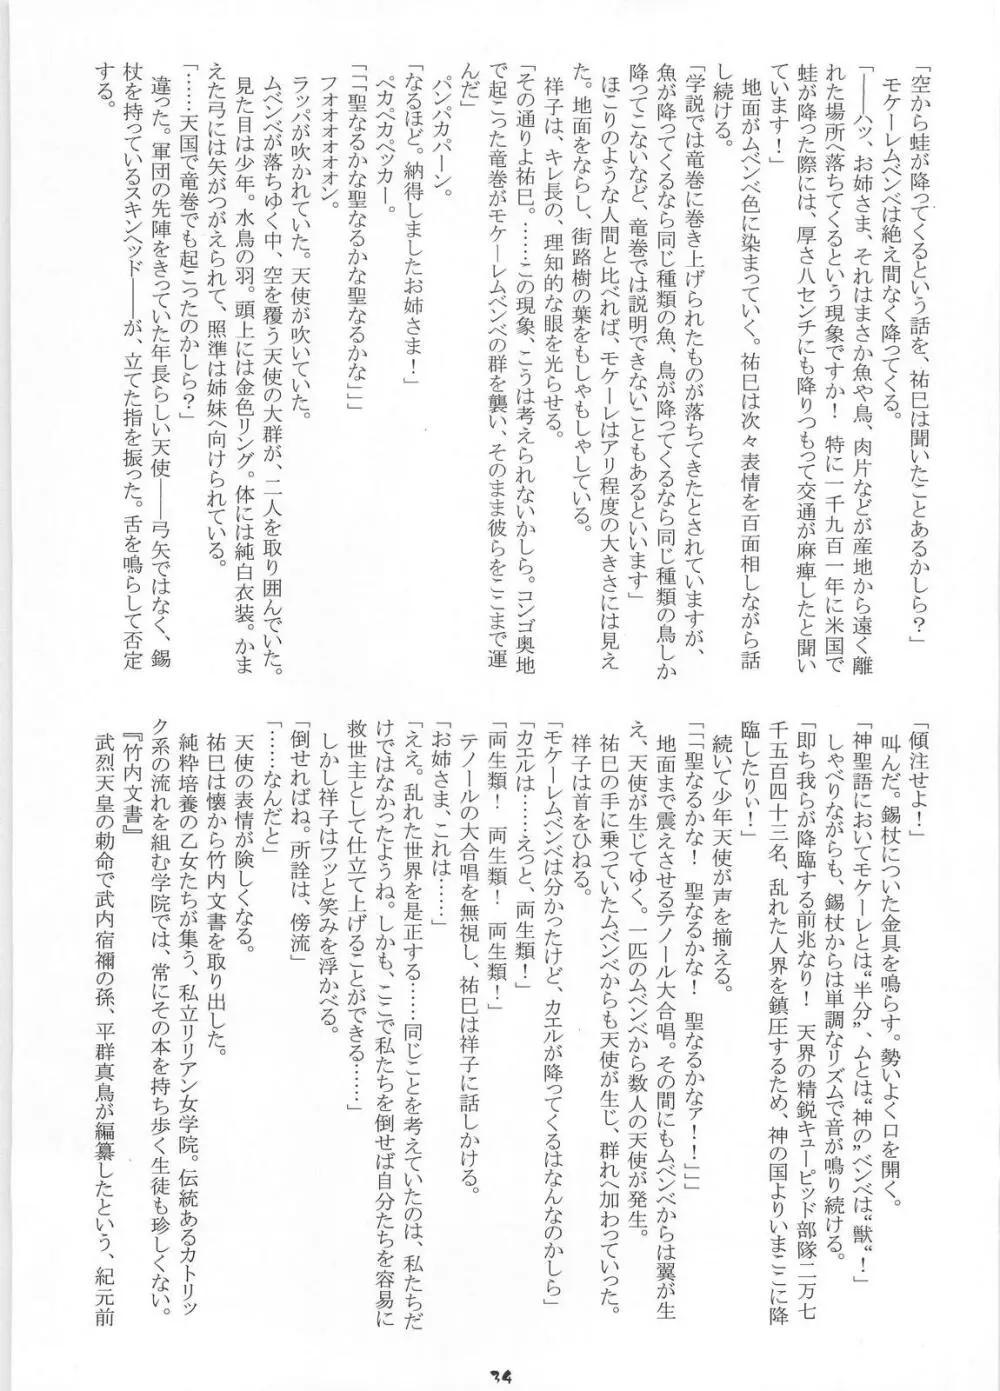 「空から蛙が降ってくるという話を、祐巳は聞いたことあるかしら？」
モケーレムベンベは絶え間なく降ってくる。
「――ハッ、お姉さま、それはまさか魚や鳥、肉片などが産地から遠く離
れた場所へ落ちてくるという現象ですか！　特に一千九百一年に米国で
蛙が降った際には、厚さ八センチにも降りつもって交通が麻痺したと聞い
ています！」
地面がムベンベ色に染まっていく。祐巳は次々表情を百面相しながら話
し続ける。
「学説では竜巻に巻き上げられたものが落ちてきたとされていますが、
魚が降ってくるなら同じ種類の魚、鳥が降ってくるなら同じ種類の鳥しか
降ってこないなど、竜巻では説明できないこともあるといいます」
ほこりのような人間と比べれば、モケーレはアリ程度の大きさには見え
た。地面をならし、街路樹の葉をもしゃもしゃしている。
祥子は、キレ長の、理知的な眼を光らせる。
「その通りよ祐巳。……この現象、こうは考えられないかしら。コンゴ奥地
で起こった竜巻がモケーレムベンベの群を襲い、そのまま彼らをここまで運
んだ」
パンパカパーン。
「なるほど。納得しましたお姉さま！」
ペカペカペッカー。
「「「聖なるかな聖なるかな聖なるかな」」」
フォオオオオオオン。
ラッパが吹かれていた。天使が吹いていた。
ムベンベが落ちゆく中、空を覆う天使の大群が、二人を取り囲んでいた。
見た目は少年。水鳥の羽。頭上には金色リング。体には純白衣装。かま
えた弓には矢がつがえられて、照準は姉妹へ向けられている。
「……天国で竜巻でも起こったのかしら？」
違った。軍団の先陣をきっていた年長らしい天使――弓矢ではなく、錫
杖を持っているスキンヘッド――が、立てた指を振った。舌を鳴らして否定
する。
「傾注せよ！」
叫んだ。錫杖についた金具を鳴らす。勢いよく口を開く。
「神聖語においてモケーレとは“半分”、ムとは“神の”ベンベは“獣“！」
しゃべりながらも、錫杖からは単調なリズムで音が鳴り続ける。
「即ち我らが降臨する前兆なり！　天界の精鋭キューピッド部隊二万七
千五百四十三名、乱れた人界を鎮圧するため、神の国よりいまここに降
臨したりぃ！」
続いて少年天使が声を揃える。
「「「聖なるかな！　聖なるかな！　聖なるかなァ！！」」」
地面まで震えさせるテノール大合唱。その間にもムベンベからは翼が生
え、天使が生じてゆく。一匹のムベンベから数人の天使が発生。
祐巳の手に乗っていたムベンベからも天使が生じ、群れへ加わっていった。
祥子は首をひねる。
「モケーレムベンベは分かったけど、カエルが降ってくるはなんなのかしら」
「カエルは……えっと、両生類！」
「両生類！　両生類！　両生類！」
テノールの大合唱を無視し、祐巳は祥子に話しかける。
「お姉さま、これは……」
「ええ。乱れた世界を是正する……同じことを考えていたのは、私たちだ
けではなかったようね。しかも、ここで私たちを倒せば自分たちを容易に
救世主として仕立て上げることができる……」
しかし祥子はフッと笑みを浮かべる。
「倒せればね。所詮は、傍流」
「……なんだと」
天使の表情が険しくなる。
祐巳は懐から竹内文書を取り出した。
純粋培養の乙女たちが集う、私立リリアン女学院。伝統あるカトリッ
ク系の流れを組む学院では、常にその本を持ち歩く生徒も珍しくない。
『竹内文書』
武烈天皇の勅命で武内宿禰の孫、平群真鳥が編纂したという、紀元前
34